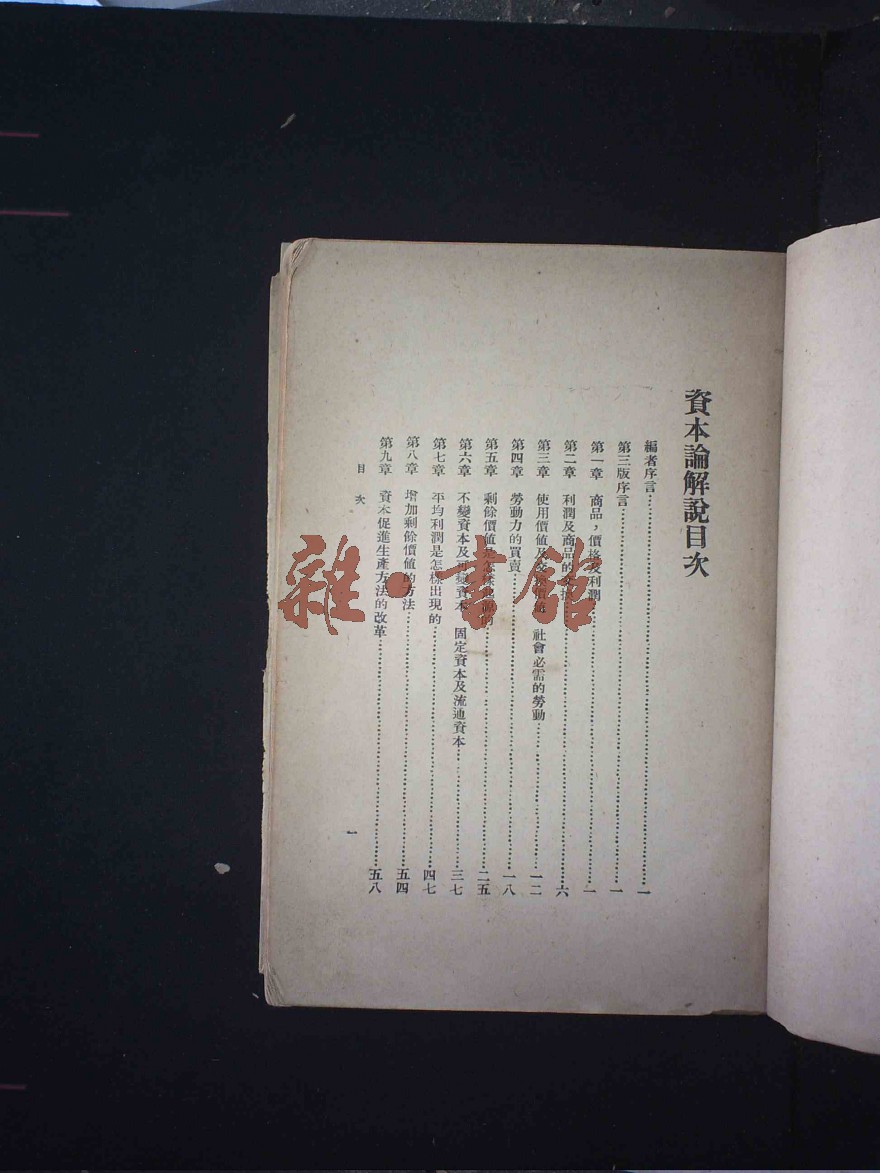 資本論解說目次
編者序言 一
第三版序言 一
第一章 商品，價格及利潤 一
第二章 利潤及商品的交換 六
第三章 使用價値及交換價値 社會必需的勞動 一二
第四章 勞動力的買賣 一八
第五章 剩餘價値是怎樣 的 二五
第六章 不變資本及可變資本 固定資本及流通資本 三七
第七章 平均利潤是怎樣出現的 四七
第八章 增加剩餘價値的方法 五四
第九章 資本促進生產方法的改革 五八
目次 一
雜·書館